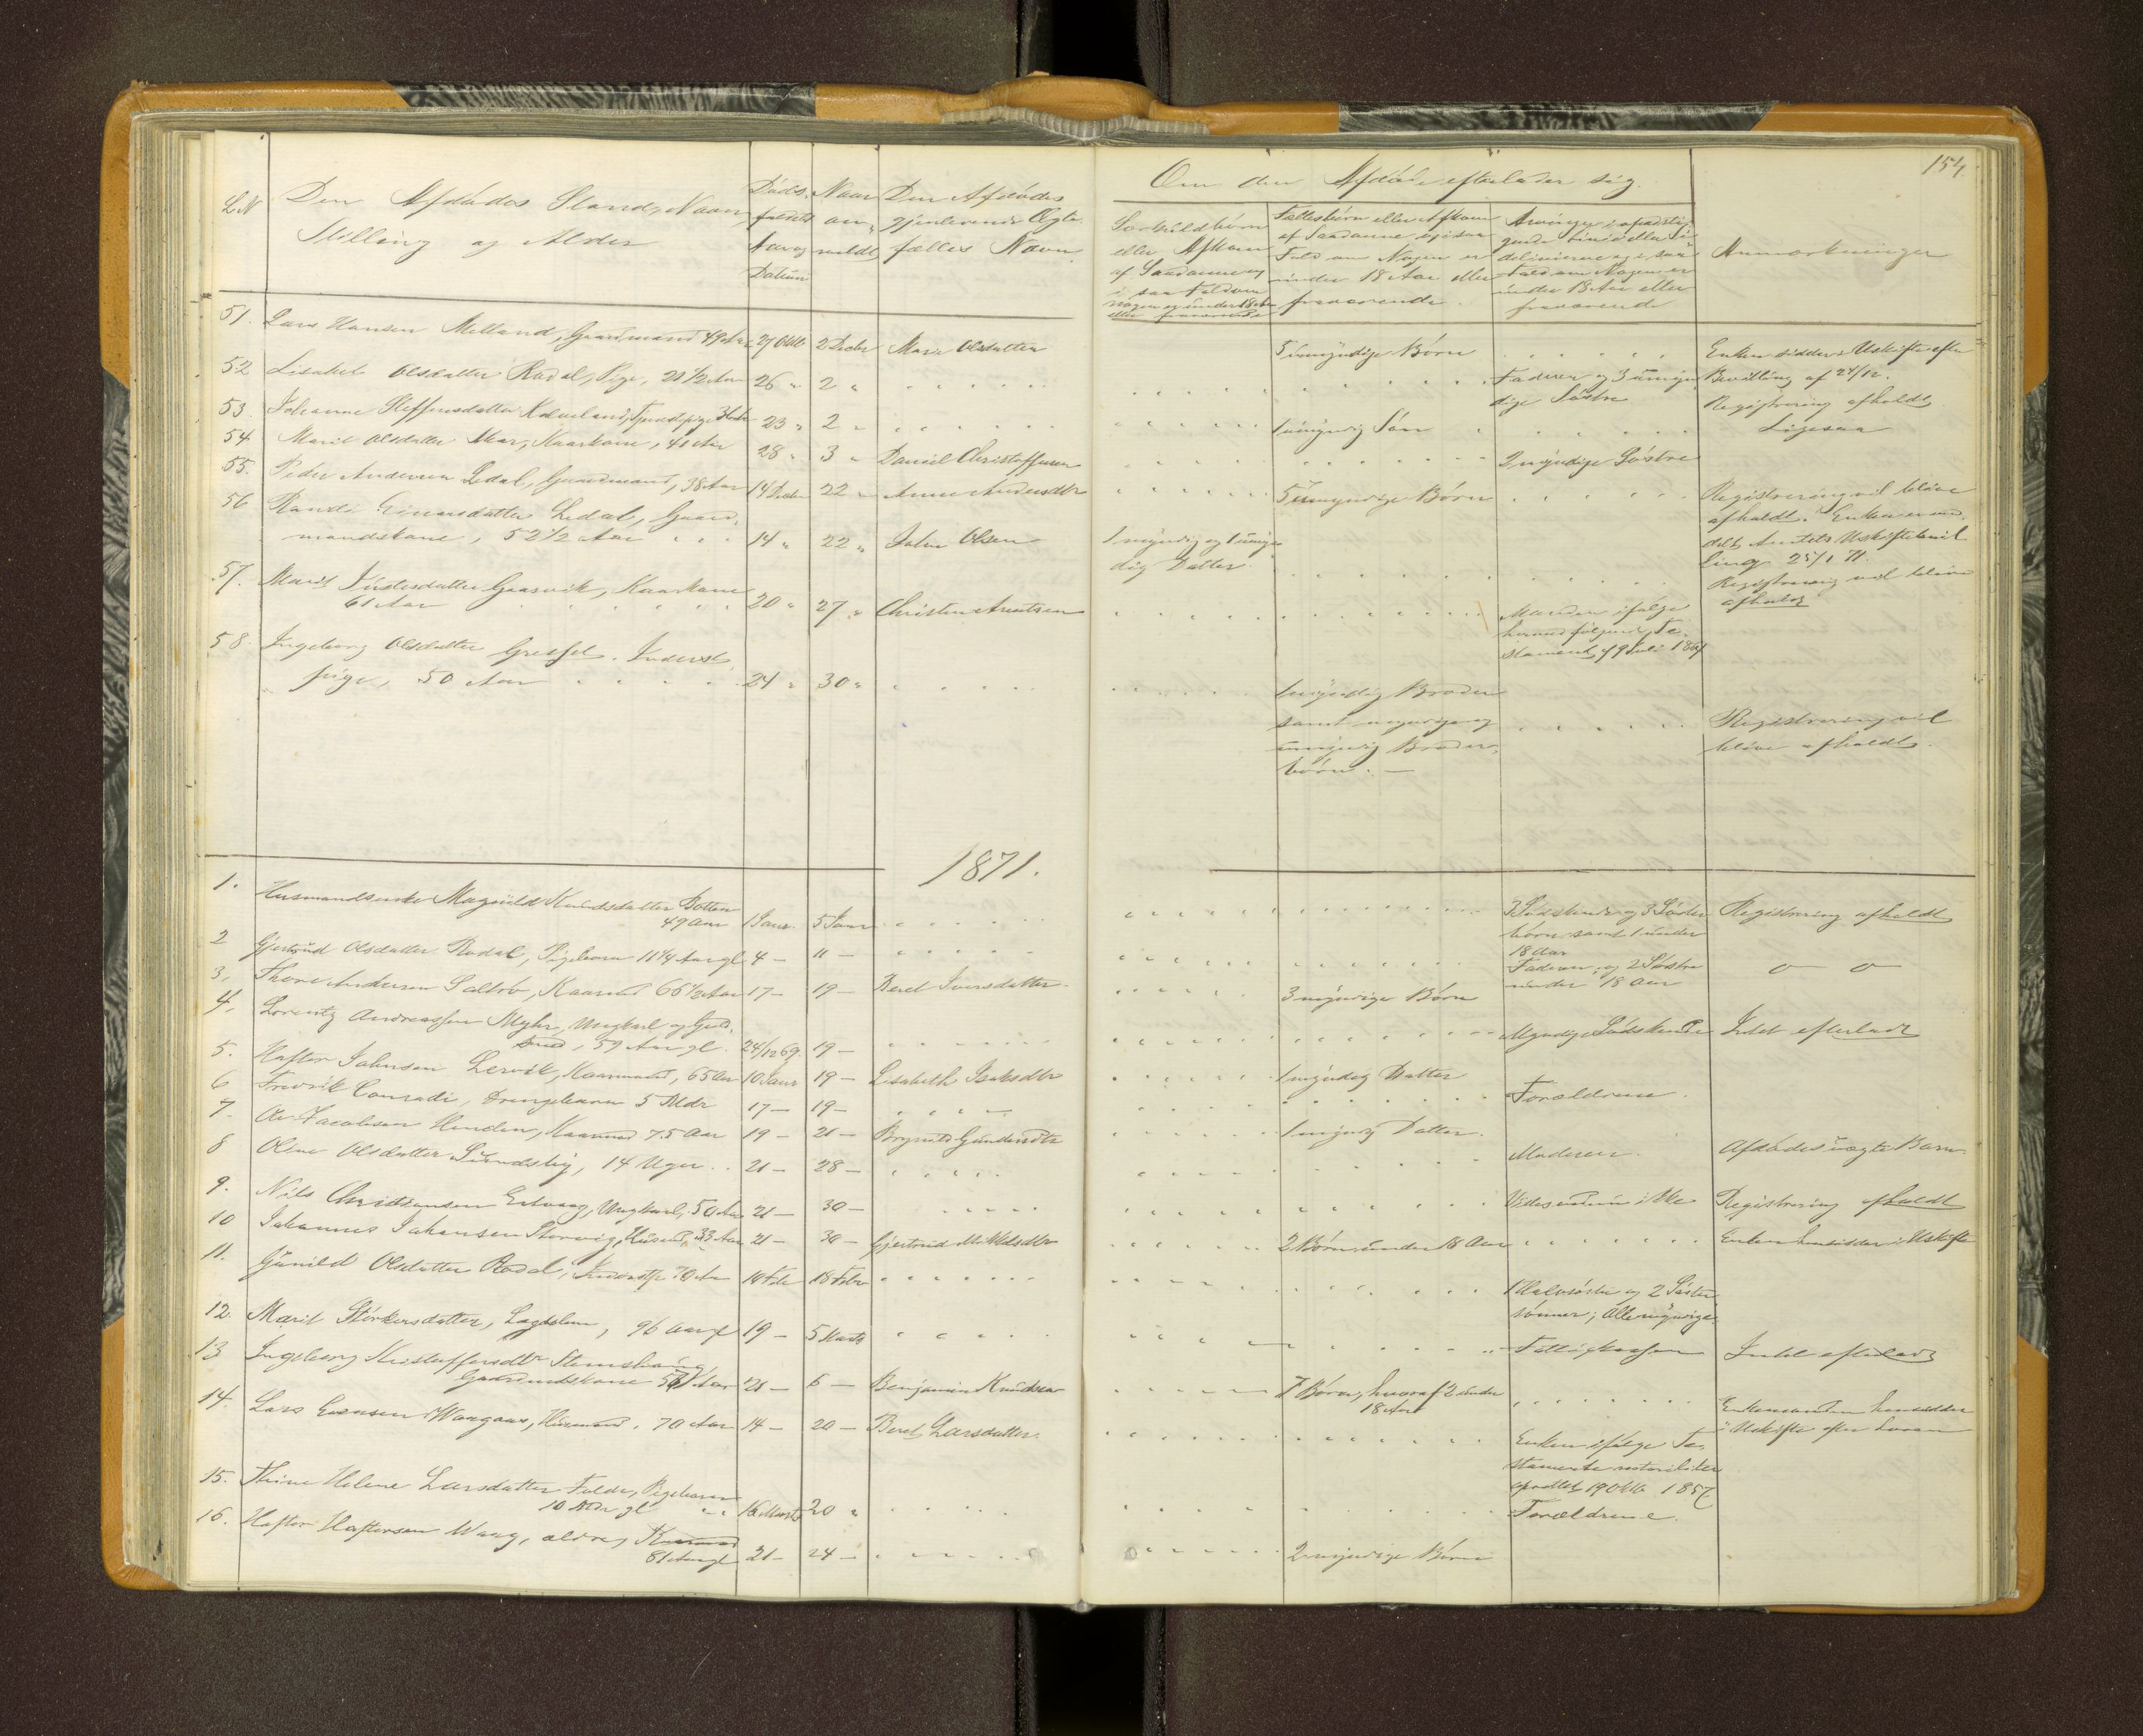 154
L.N
Den Afdødes Stand, Navn,
Stilling og Alder
Døds-
faldets
Aar og
Datum
Naar
an-
meldt
Den Afdødes
gjenlevende Ægte-
fælles Navn.
Om den Afdøde efterlader sig
Særkuldsbørn
eller Afkom
af Saadanne og
i saa Fald om
Nogen er under 18 Aar
eller fraværende
Fællesbørn eller Afkom
af Saadanne og i saa
Fald om Nogen er
under 18 Aar eller
fraværende.
Arvinger i opadsti-
gende Linie eller Si-
delinierne og i saa
Fald om Nogen er
under 18 Aar eller
fraværende
Anmærkninger
51. Lars Hansen Melland, Gaardmand 49 Aar 27 Oktb 2 Decbr Marie Olsdatter 5 umyndige Børn Enken sidder i Uskifte efter
Bevilling af 24/12.
52 Lisabet Olsdatter Rodal, Pige, 21 1/2 Aar 26 " 2 " Faderen og 3 umyn-
dige Søstre Registrering afholdt
53. Johanne Steffensdatter Tjenestepige 23 " 2 " 1 umyndig Søn Ligesaa
54 Marit Olsdatter Kaarkone, 41 Aar 28 " 3 " Daniel Christoffersen 2 myndige Søstre
55. Peder Andersen Ledal, Gaardmand, 38 Aar 14 Decbr 22 " Anne Andersdtr 5 umyndige Børn Registrering vil blive
afholdt. Enken er med-
delt Amtets Uskiftebevil-
ling 25/1 71.
56 Randi Einarsdatter Ledal, Gaard-
mandskone, 52 1/2 Aar 14 " 22 " John Olsen 1 myndig og 1 umyn-
dig Datter. Registrering vil blive
afholdt
57. Marit Justesdatter Gaasvik, Kaarkone
61 Aar 20 " 27 " Christen Arentsen Manden ifølge
herved følgende Te-
stament af 9 Juli
58. Ingeborg Olsdatter Inderst
pige, 50 Aar 24 " 30 " 1 myndig Broder
samt myndige og
umyndig Broder-
børn. — Registrering vil
blive afholdt.
1871.
1. Husmandsenke Magnild Knudsdatter Botten
49 Aar 1 Janr. 5 Janr 3 Sødskende og 3 Søster-
børn samt 1 under
18 Aar Registrering afholdt
2 Gjertrud Olsdatter Rodal, Pigebarn 11 1/4 Aar gl 4 — 11 — Faderen, og 2 Søstre
under 18 Aar — o — o —
3. Thore Andersen Saltrø, Kaarmd 66 1/2 Aar 17 — 19 — Beret Iversdatter. 3 myndige Børn
4. Lorentz Andreassen Myhr, Ungkarl og Guld-
smed, 59 Aar gl. 24/12 69. 19 — Myndige Sødskende Intet efterladt
5. Hafter Johnsen Lervik, Kaarmand, 65 Aar 10 Janr 19 — Lisabeth Isaksdtr 1 myndig Datter
6 Fredrik Conradi, Drengebarn 5 Mdr 17 — 19 — Forældrene.
7. Ole Jacobsen Henden, Kaarmd 75 Aar 19 — 21 — Brynild Gundersdtr 1 myndig Datter.
8 Oline Olsdatter Sundsby, 14 Uger 21 — 28 — Moderen. Afdødes uægte Barn.
9. Nils Christiansen Ungkarl, 50 Aar 21 — 30 — Vides endnu ikke Registrering afholdt
10 Johannes Johansen Storvig, Husmd. 33 Aar 21 — 30 — Gjertrud Mikkelsdtr 2 Børn under 18 Aar Enken hensidder i Uskifte
11. Gunild Olsdatter Rodal, 70 Aar 10 Febr 18 Febr 1 Halvsøster og 2 Søster-
sønner; Alle myndige.
12. Marit Størkersdatter, Lægdslem, 96 Aar gl 19 — 5 Marts Fattigkassen Intet efterladt
13 Ingeborg Kristoffersdtr Stemshaug,
Gaardmdskone 56 1/2 Aar 21 — 6 — Benjamin Knudsen 7 Børn, hvoraf 2 under
18 Aar Enkemanden hensidder
i Uskifte efter Loven
14. Lars Evensen Waagaas, Husmand, 70 Aar 14 — 20 — Beret Larsdatter. Enken ifølge Te-
stamente notorialiter
oprettet 19 Oktb 1857
15. Thrine Helene Larsdatter Pigebarn
10 Mdr gl 16 Marts 20 " Forældrene.
16. Hafter Haftersen Waag, ældre, Kaarmand
81 Aar gl 21 — 24 — 2 myndige Børn